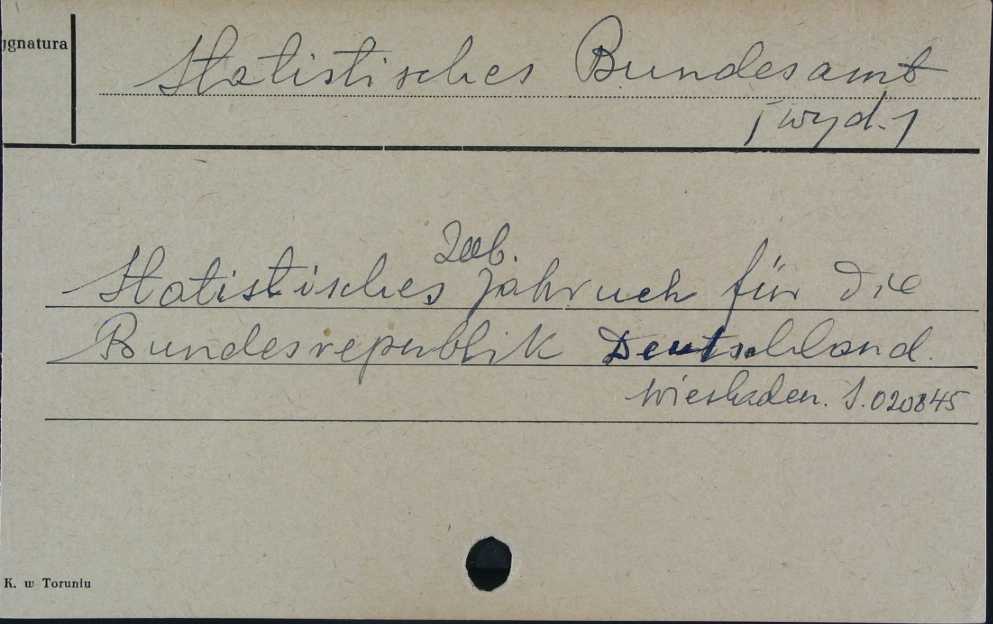 ygnatura
Statistisches Bundesamt
[wyd.]
Zob.
Statistisches Jahruch für die
Bundesrepublik Deutschland.
Wiesbaden. S.020845
K. w Toruniu